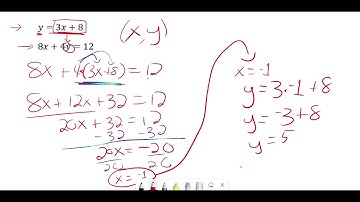 → y = 3x + 8
→ 8x + 4y = 12
(x,y)
8x + 4(3x+8) = 12
8x + 12x + 32 = 12
20x + 32 = 12
-32 -32
20x = -20
20 20
x = -1
x = -1
y = 3·-1 + 8
y = -3 + 8
y = 5